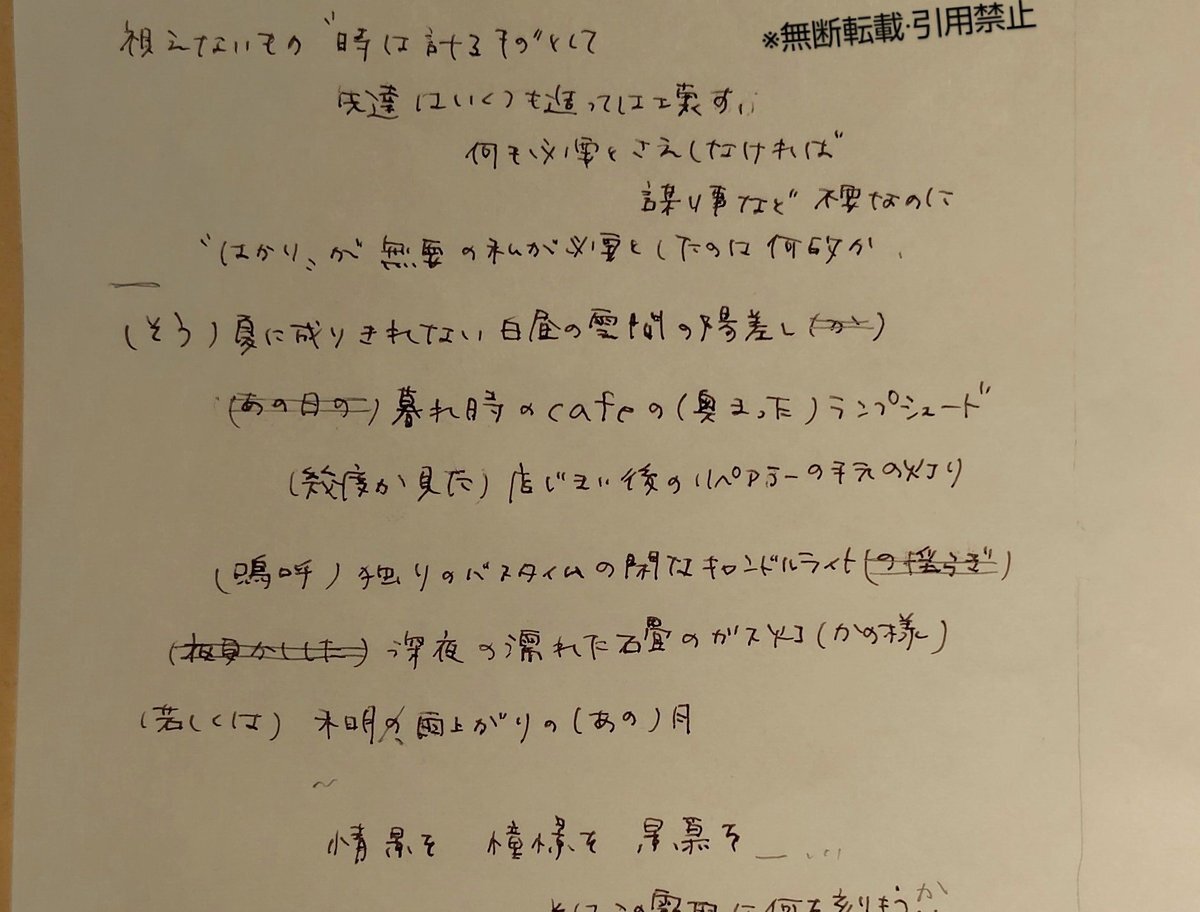 視えないもの〝時は計るもの〟として
※無断転載·引用禁止
先達はいくつも造っては壊す、、
何も必要とさえしなければ
謀り事など 不要なのに
〝はかり〟が 無要の私が必要としたのは何故か、
(そう) 夏に成りきれない 白昼の雲間の陽差し (かと)
(あの日の) 暮れ時のcafeの (奥まった) ランプシェード
(幾度か見た) 店じまい後のリペアラーの手元の灯り
(嗚呼) 独りのバスタイムの閑なキャンドルライト (の揺らぎ)
(夜更かしした) 深夜の濡れた石畳のガス灯 (かの様)
(若しくは) 未明の雨上がりの (あの) 月
〜
情景を 憧憬を 景慕を
そしてこの 何を刻もうか